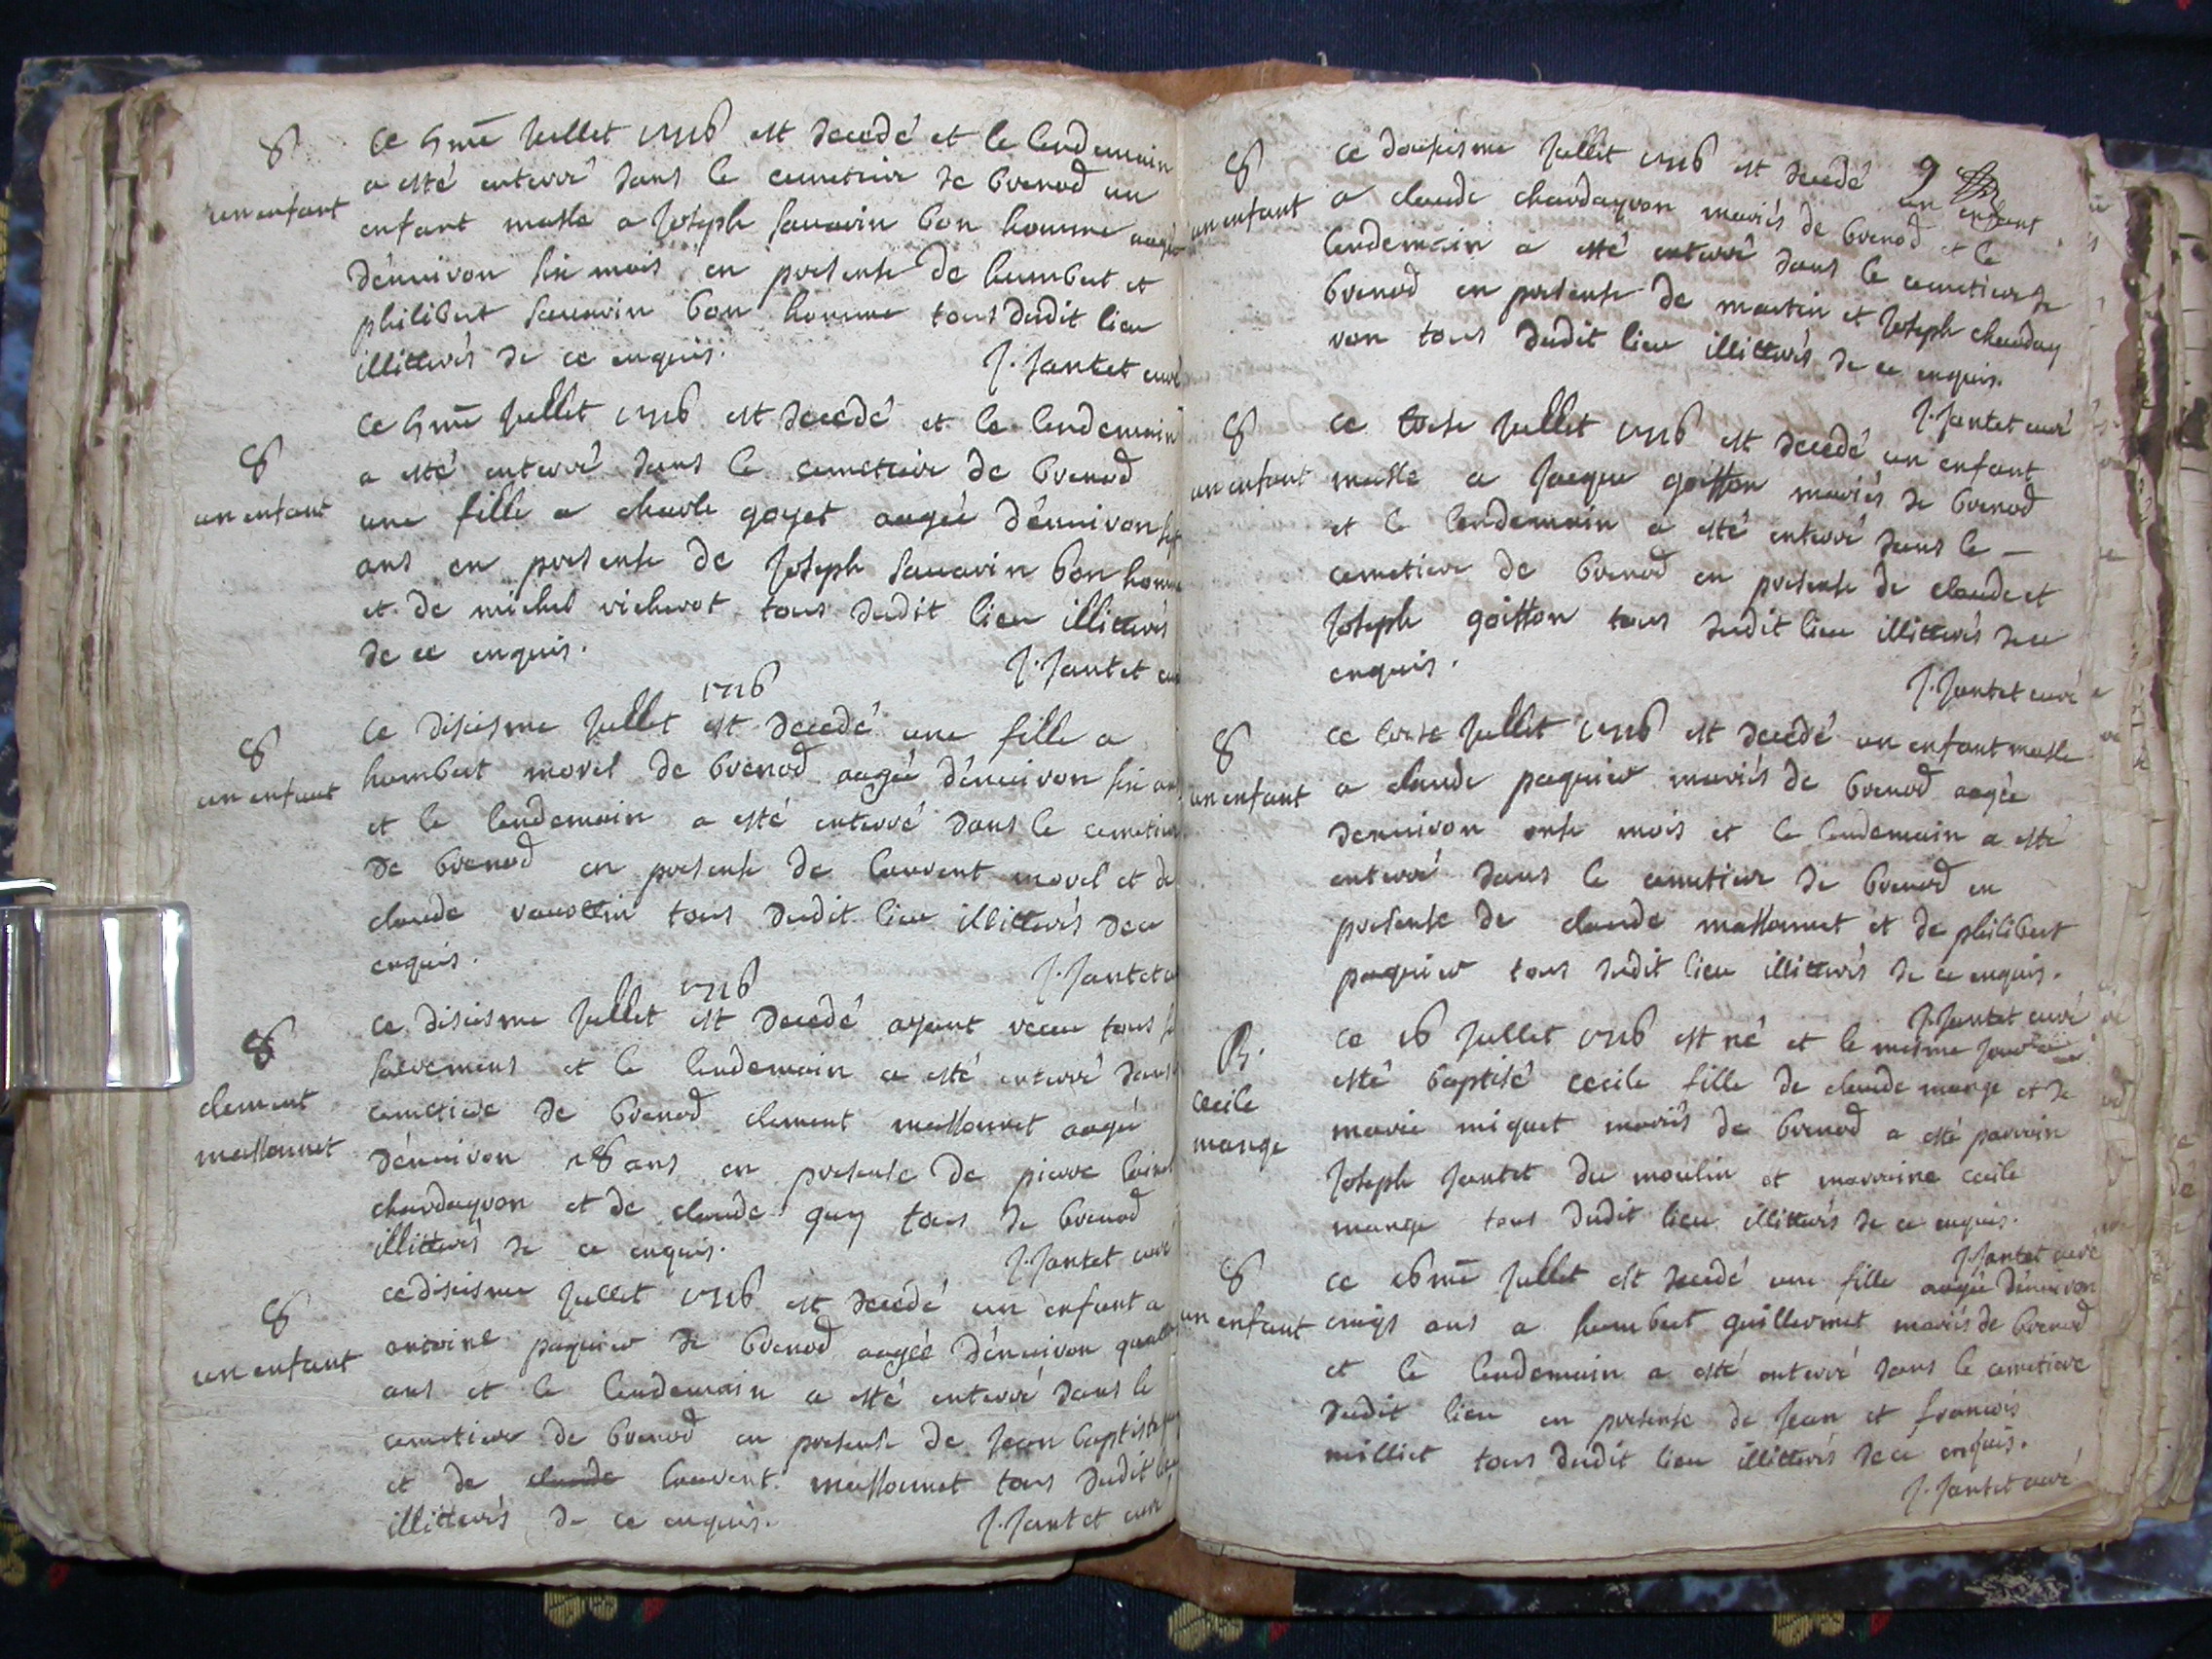 8
un enfant
ce 9me Jullet 1716 est decedé et le lendemain
a esté enterré dans le cemetiere de brenod un
enfant masle a Joseph Savarin bon homme aagé
d'enuiron six mois en presense de humbert et
philibert Savarin bon homme tous dudit lieu
illitterés de ce enquis.
J. Jantet curé
8
un enfant
ce 9me Jullet 1716 est decedé et le lendemain
a esté enterré dans le cemetiere de brenod
une fille a charle goyet aagée d'enuiron
ans en presense de Joseph Sauarin bon homme
et de michel richerot tous dudit lieu illitterés
de ce enquis.
J. Jantet cu
8
un enfant
1716
ce disiesme Jullet est decedé une fille a
humbert morel de brenod aagée d'enuiron six ans
et le lendemain a esté enterré dans le cemetiere
de brenod en presense de laurent morel et de
claude tous dudit lieu illitterés de ce
enquis.
J. Jantet
8
clement
massonnet
1716
ce disiesme Jullet est decedé ayant receu tous
sacremens et le lendemain a esté enterré dans
cemetiere de brenod clement massonnet aagé
d'enuiron ans en presense de pierre
chardayron et de claude guy tous de brenod
illitterés de ce enquis.
J. Jantet curé
8
un enfant
ce disiesme Jullet 1716 est decedé un enfant a
antoine paquier de brenod aagéé d'enuiron quatre
ans et le lendemain a esté enterré dans le
cemetiere de brenod en presense de Jean baptiste
et de claude laurent massonnet tous dudit lieu
illitterés de ce enquis.
J. Jantet curé
9
8
un enfant
ce dousiesme Jullet 1716 est decedé un enfant
a claude chardayron mariés de brenod et le
lendemain a esté enterré dans le cemetiere de
brenod en presense de martin et Joseph charday
ron tous dudit lieu illitterés de ce enquis.
J. Jantet curé
8
un enfant
ce Jullet 1716 est decedé un enfant
masle a Jacque goisson mariés de brenod
et le lendemain a esté enterré dans le
cemetiere de brenod en presense de claude et
Joseph goisson tous dudit lieu illitterés de ce
enquis.
J. Jantet curé
8
un enfant
ce Jullet 1716 est decedé un enfant masle
a claude paquier mariés de brenod aagée
denuiron onse mois et le lendemain a esté
enterré dans le cemetiere de brenod en
presense de claude massonnet et de philibert
paquier tous dudit lieu illitterés de ce enquis.
J. Jantet curé
B.
cecile
mange
ce 16 Jullet 1716 est né et le mesme Jour a
esté baptisé cecile fille de claude mange et de
marie miquet mariés de brenod a esté parrain
Joseph Jantet du moulin et marraine cecile
mange tous dudit lieu illitterés de ce enquis.
J. Jantet curé
8
un enfant
ce 16me Jullet est decedé une fille aagée d'enuiron
cinqs ans a humbert guillermet mariés de brenod
et le lendemain a esté enterré dans le cemetiere
dudit lieu en presense de Jean et francois
milliet tous dudit lieu illitterés de ce enquis.
J. Jantet curé